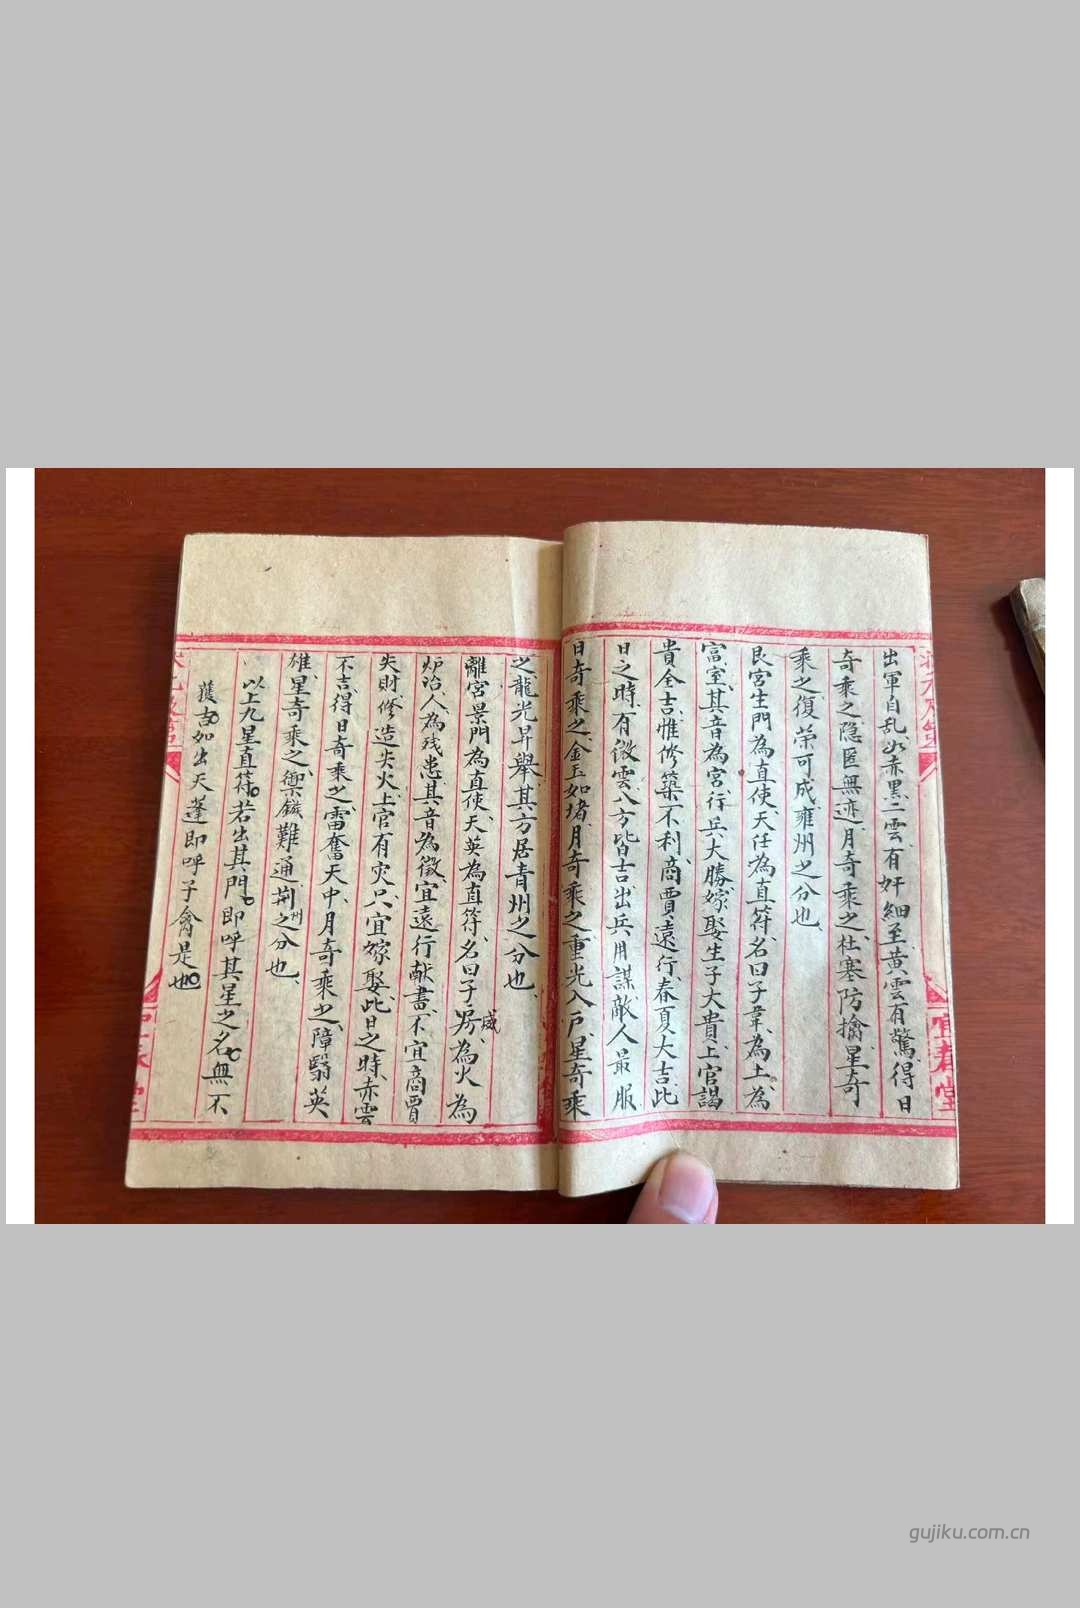 出軍自乱必赤黒二雲有奸細至黄雲有驚得日
奇乘之隐匿無迹月奇乘之杜塞防擒星奇
乘之復荣可成雍州之分也
艮宮生門為直使天任為直符名曰子韋為土為
富室其音為宮行兵大勝嫁娶生子大貴上官謁
貴全吉惟修築不利商賈遠行春夏大吉此
日之時有微雲八方皆吉出兵用謀敵人最服
日奇乘之金玉如堵月奇乘之重光入戶星奇乘
之龍光昇舉其方居青州之分也
離宮景門為直使天英為直符名曰子威為火為
炉冶人為残患其音為徵宜遠行献書不宜商賈
失財修造失火上官有灾只宜嫁娶此日之時赤雲
不吉得日奇乘之雷奮天中月奇乘之障翳英
雄星奇乘之禦鎡難通荆州之分也
以上九星直符若出其門即呼其星之名無不
獲吉如出天蓬即呼子禽是也
宜春堂
gujiku.com.cn